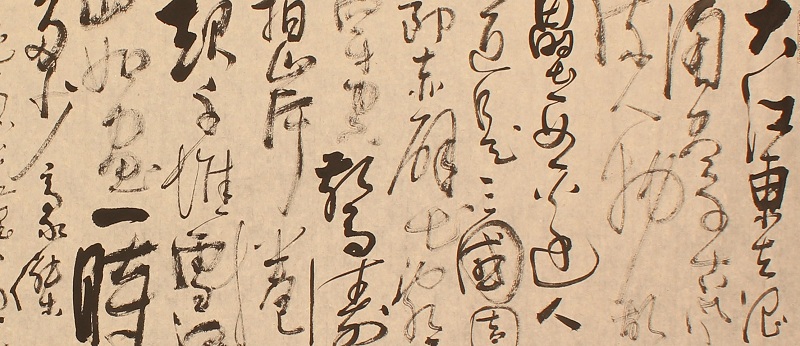 大江東去浪
淘盡千古風
流人物故
壘西邊人
道是三國周
郎赤壁
空驚濤
拍岸捲
起千堆雪江
山如畫一時
多少豪傑